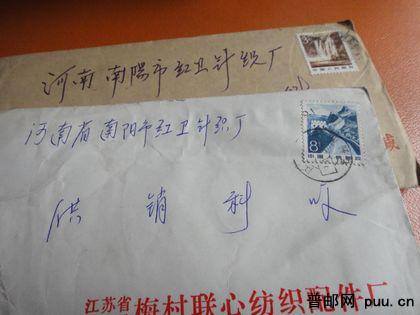 河南南阳市红卫针织厂
河南省南阳市红卫针织厂
8
中国人民邮政
供销科收
江苏省梅村联心纺织配件厂
普邮网 puu.cn